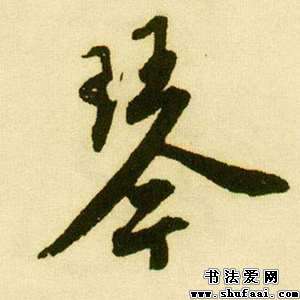 琴
书法爱网
www.shufaai.com